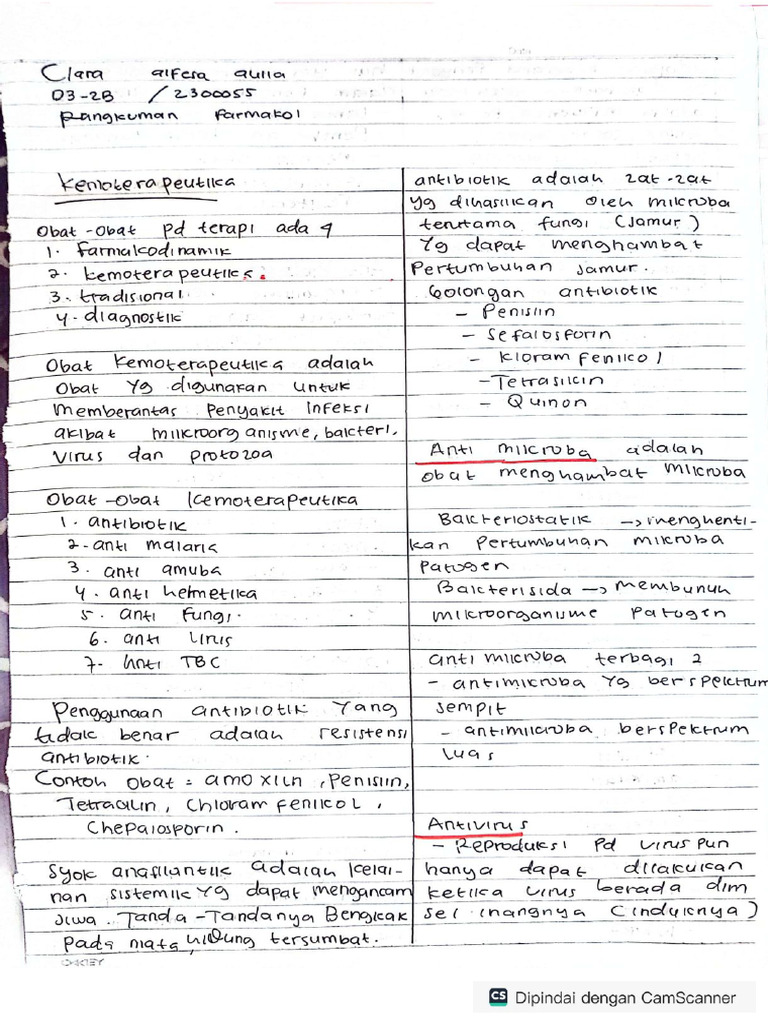 Clara alfesa aulia
03-2B / 2300055
Rangkuman Farmakol
Kemoterapeutika
Obat-obat pd terapi ada 4
1. farmakodinamik
2. kemoterapeutiks.
3. tradisional
4. diagnostik
Obat Kemoterapeutika adalah
Obat yg digunakan untuk
memberantas Penyakit infeksi
akibat mikroorganisme, bakteri,
virus dan protozoa
Obat-obat Kemoterapeutika
1. antibiotik
2. anti malaria
3. anti amuba
4. anti helmetika
5. anti fungi.
6. anti virus
7. Anti TBC
Penggunaan antibiotik yang
tidak benar adalah resistensi
antibiotik.
Contoh obat = amoxilin, Penisiin,
Tetracilin, Chloramfenikol,
Chepalosporin.
Syok anafilantik adalah kelai-
nan sistemik yg dapat mengancam
jiwa. Tanda-Tandanya Bengkak
pada mata, hidung tersumbat.
antibiotik adalah zat-zat
yg dihasilkan oleh mikroba
terutama fungi (jamur)
yg dapat menghambat
Pertumbuhan jamur.
Golongan antibiotik
- Penisiin
- Sefalosforin
- kloramfenikol
- Tetrasilcin
- Quinon
Anti mikroba adalah
obat menghambat mikroba
Bakteriostatik → menghenti-
kan Pertumbuhan mikroba
Patogen
Bakterisida → membunuh
mikroorganisme Patogen
anti mikroba terbagi 2
- antimikroba yg berspektrum
sempit
- antimikroba berspektrum
luas
Antivirus
- Reproduksi Pd virus pun
hanya dapat dilakukan
ketika virus berada dlm
sel inangnya (induknya)
CS Dipindai dengan CamScanner